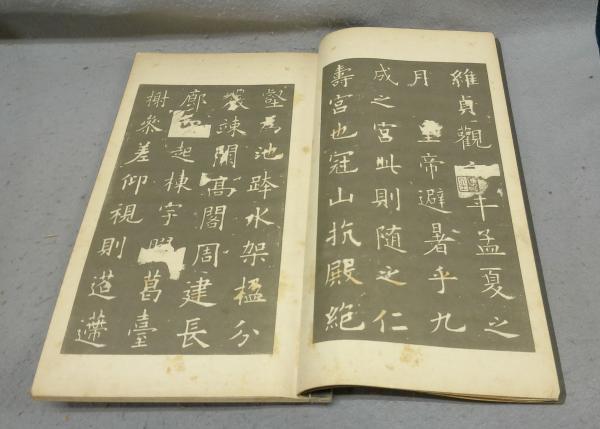 維貞觀年孟夏之
月皇帝避暑乎九
成之宮此則隨之仁
壽宮也冠山抗殿絕
壑為池跨水架楹分
巖竦闕高閣周建長
廊起棟宇葛臺
榭參差仰視則迢遰